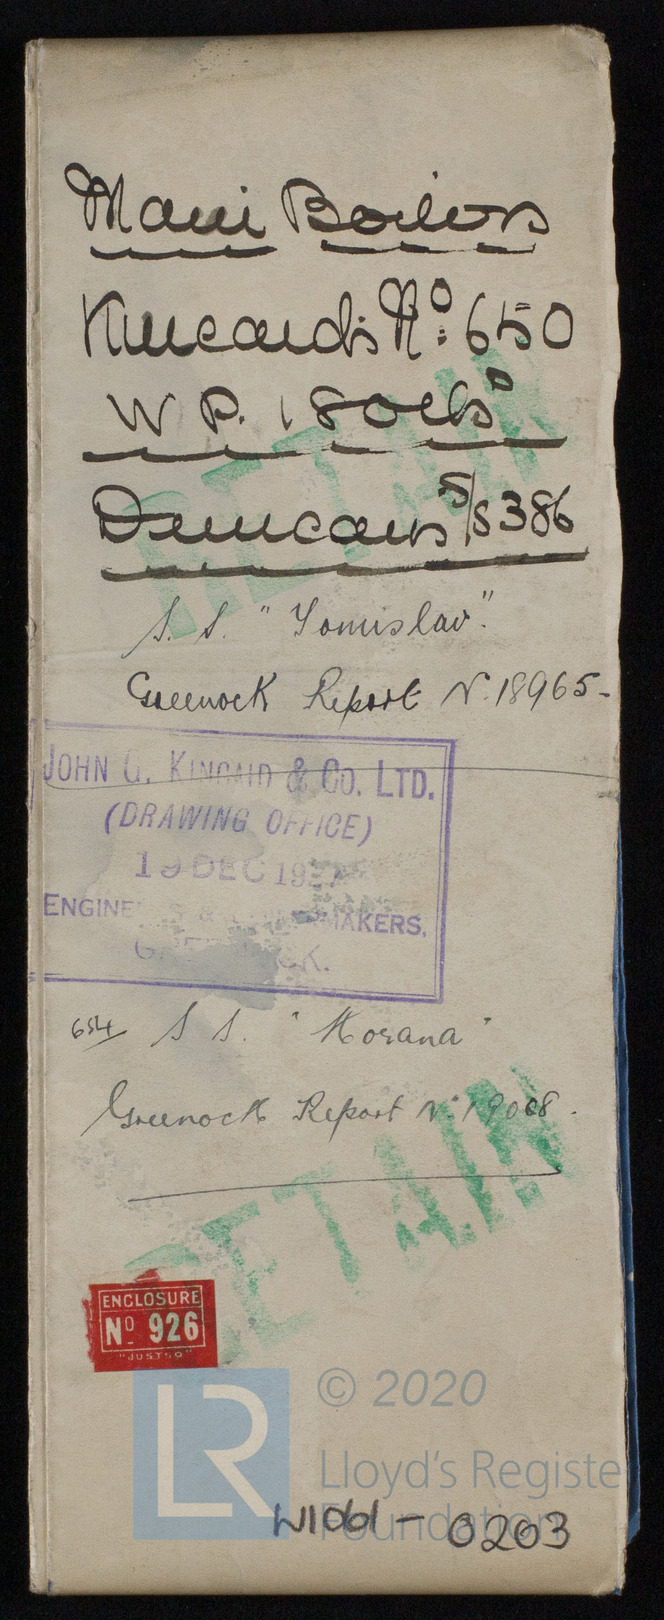 Main Boilers
Kincaids No: 650
W P. 180 lbs □
Duncans S/S 386
S. S. "Tomislav".
Greenock Report No. 18965-
JOHN G. KINCAID & CO. LTD.
(DRAWING OFFICE)
19 DEC 19
ENGINE & MAKERS,
654 S S. "Korana"
Greenock Report No 19068.
RETAIN
RETAIN
ENCLOSURE
No 926
"JUSTSO"
LR
© 2020
Lloyd's Register
Foundation
W1061-0203